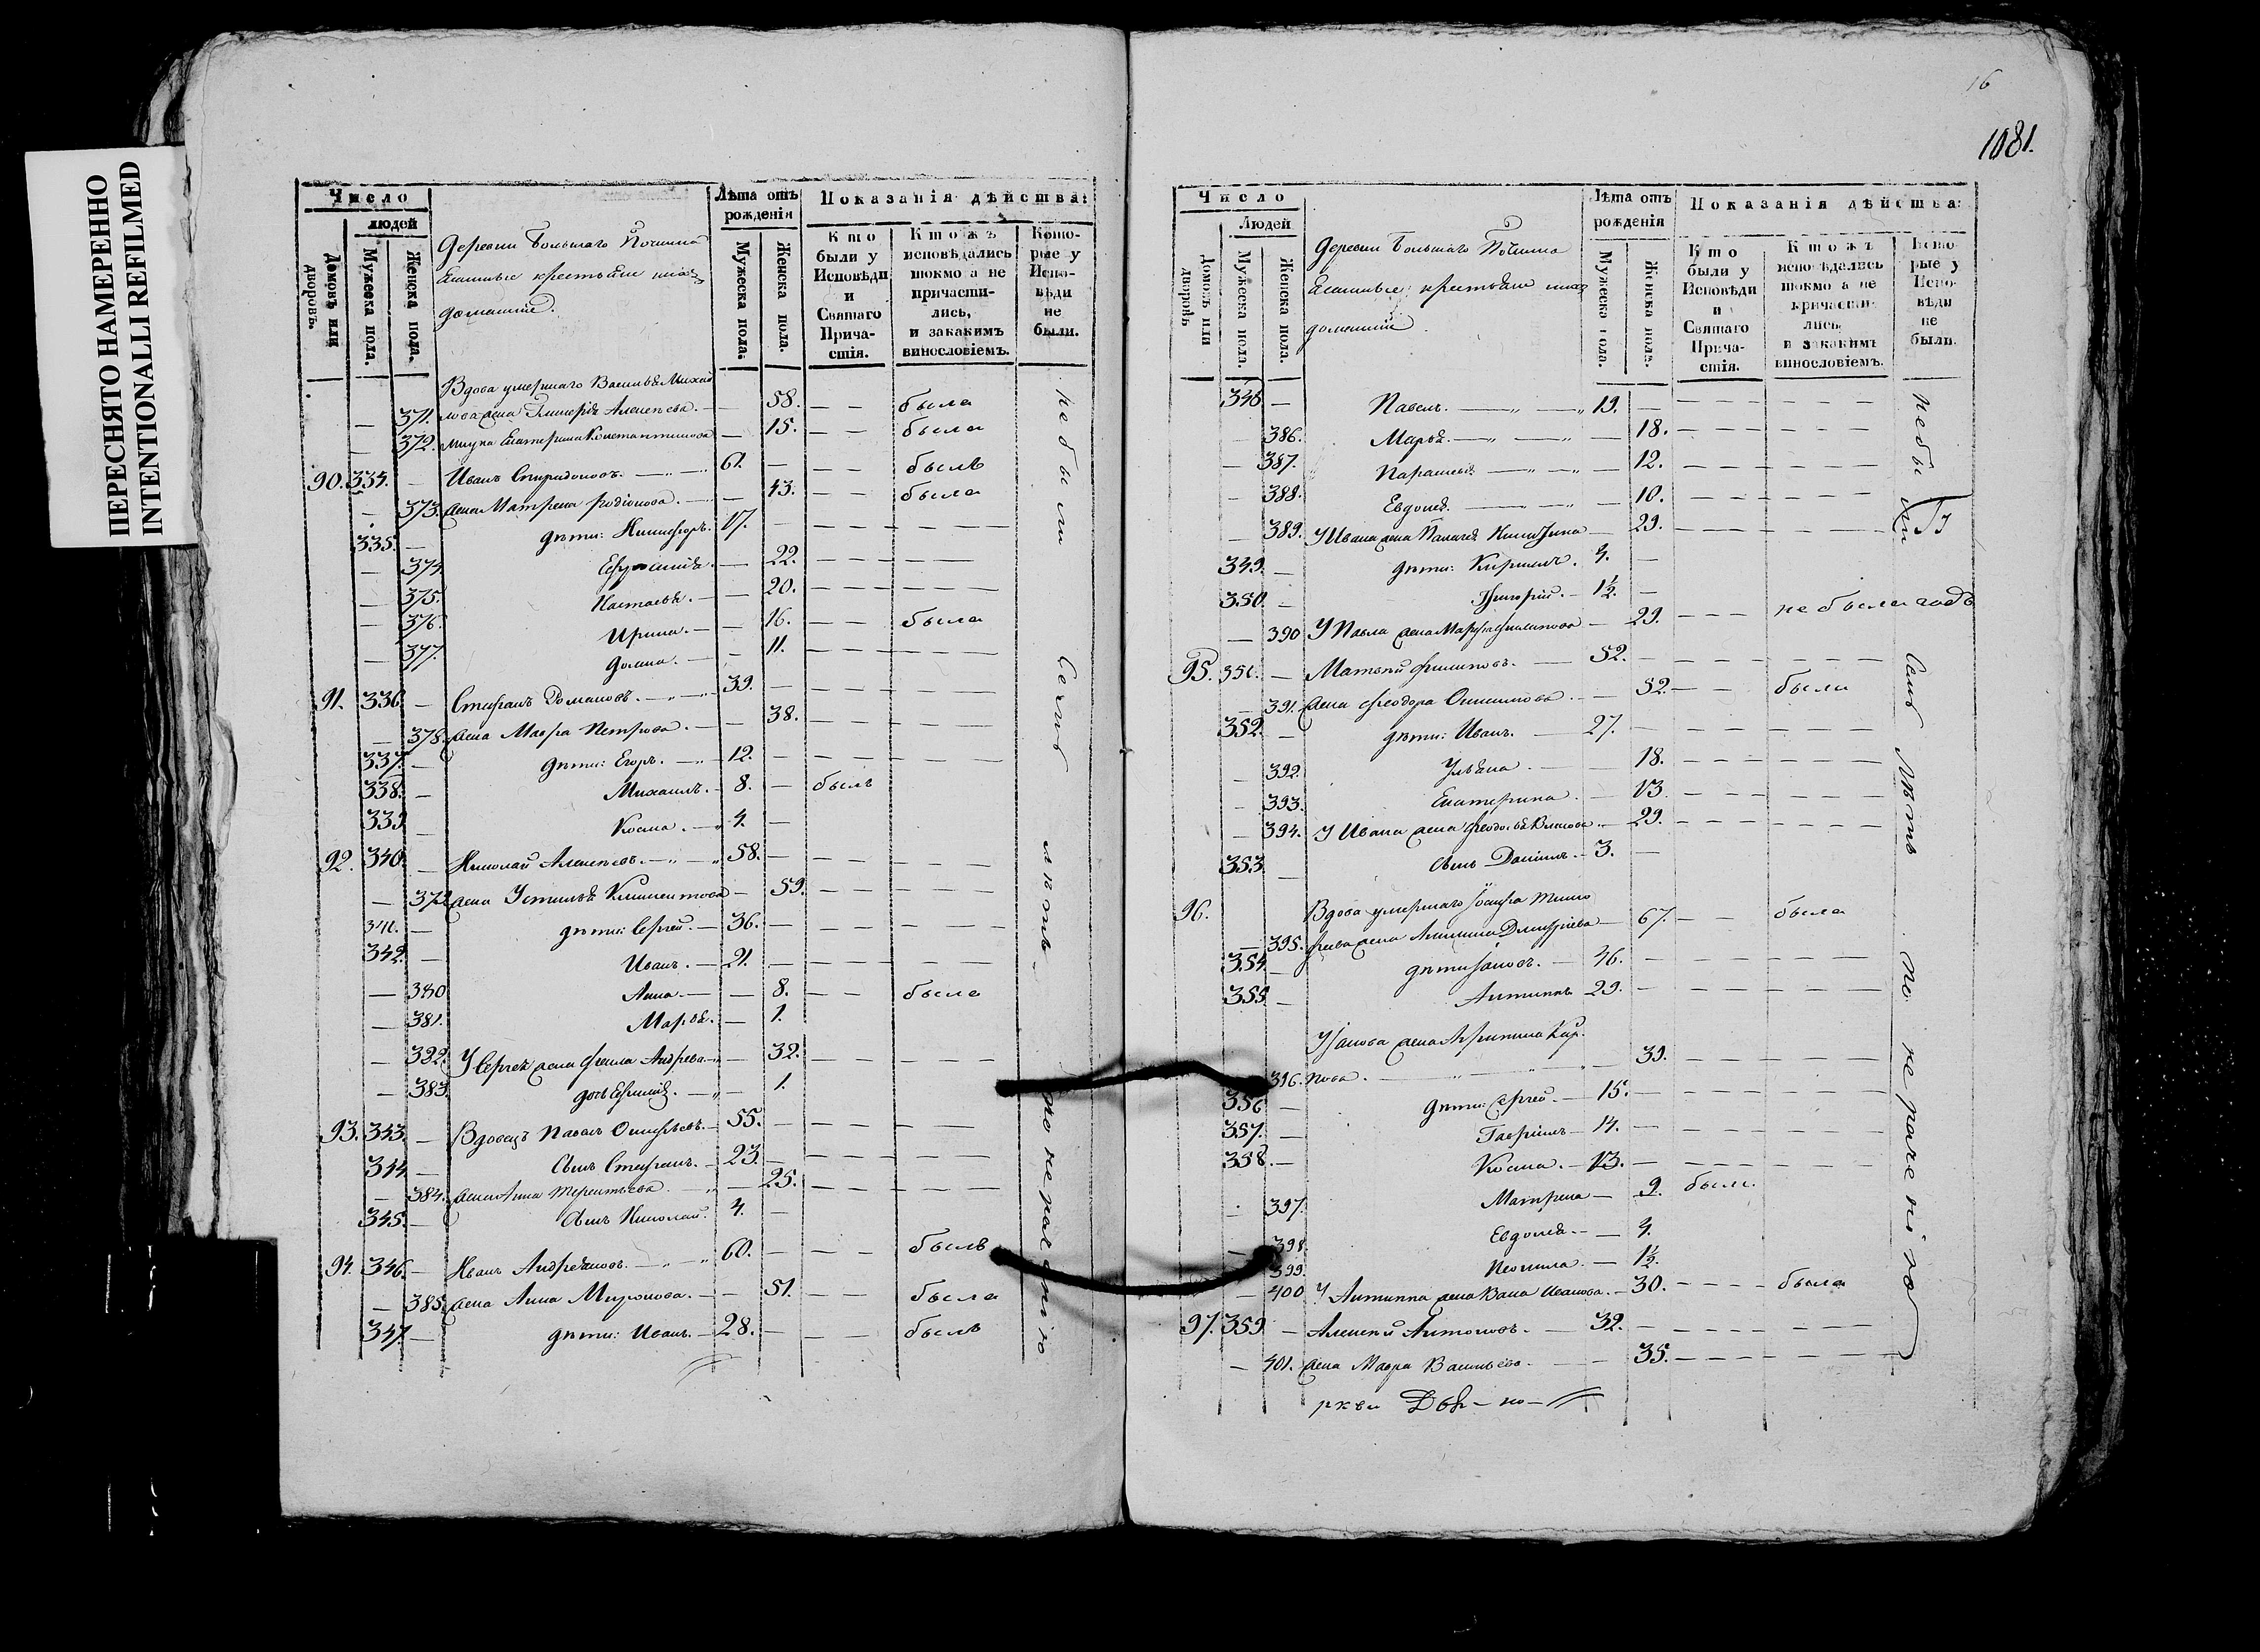 ПЕРЕСНЯТО НАМЕРЕННО
INTENTIONALLI REFILMED
Число
людей
Домовъ или дворовъ.
Мужеска пола.
Женска пола.
Деревни Большаго Починка
крестьяне
домашніе.
Лѣта отъ рожденія
Мужеска пола.
Женска пола.
Показанія дѣйства:
Кто были у Исповѣди и Святаго Причастія.
Ктожъ исповѣдались токмо а не причастились, и закакимъ винословіемъ.
Которые у Исповѣди не были.
Вдова умершаго Васильѧ Михай
371. лова жена Гликерія Алексѣева. — 58. — — была
372. внука Екатерина Константинова — 15. — — была
90. 334. — Иванъ Спиридоновъ. 61. — — — былъ
373. жена Матрена Родіонова. — 43. — — была
335. — дѣти: Никифоръ. 17. —
374. — 22.
375. Настасья. — 20.
376. Ирина. — 16. — — была
377. Домна. — 11.
91. 336. — Стефанъ Романовъ. 39. —
378. жена Мавра Петрова. — 38.
337. — дѣти: Егоръ. 12. —
338. — Михаилъ. 8. — былъ
339. — Косма. 4. —
92. 340. — Николай Алексѣевъ. 58. —
379. жена Устинья Климентова — 59.
341. — дѣти: Сергей. 36. —
342. — Иванъ. 21. —
380 Анна. — 8. — — была
381. Марья. — 1.
382. У Сергея жена Фекла Андрева — 32.
383. дочь — 1.
93. 343. — Вдовецъ Павелъ 55. —
344. — Сынъ Стефанъ. 23. —
384. жена Анна Терентьева — 25.
345. — Сынъ Николай. 4. —
94. 346. — Иванъ Андреяновъ. 60. — — — былъ
385. жена Анна Миронова. — 51. — — была
347. — дѣти: Иванъ. 28. — — — былъ
не были
лѣтъ
по нераденію
16
1081.
Число
Людей
Домовъ или дворовъ
Мужеска пола.
Женска пола.
Деревни Большаго Починка
крестьяне
домашніе
Лѣта отъ рожденія
Мужеско пола.
Женска пола.
Показанія дѣйства:
Кто были у Исповѣди и Святаго Причастія.
Ктожъ исповѣдались токмо а не причастились, и закакимъ винословіемъ.
Которые у Исповѣди не были.
348 — Павелъ. 19. —
386. Марья. — 18.
387. Параскевья — 12.
388. Евдокія. — 10.
389. У Ивана жена — 29.
349. — дѣти: Кириллъ. 4. —
350. — Григорій. 1½. —
390 У Павла жена — 29. не была
95. 351. — Матвѣй Филиповъ. 52. —
391. жена Феодора — 52. — — была
352. — дѣти: Иванъ. 27. —
392. Ульяна. — 18.
393. Екатерина. — 13
394. У Ивана жена Феодосья — 29.
353. — Сынъ Даніилъ. 3. —
96. Вдова умершаго Іосифа Тимо
395. феева жена Акилина Дмитріева — 67. — — была
354. — дѣти: Іаковъ. 46. —
355. — Антиппъ 29. —
У Іакова жена Агрипина Кар
396. пова. 39.
356 — дѣти: Сергей. 15. —
357. — Гавріилъ 14. —
358. — Косма. 13. —
397. Матрена — 9. была.
398. Евдокія — 4.
399. Неонила. — 1½.
400 У Антиппа жена Васа Иванова. 30. была
97. 359 — Алексѣй Антоновъ. 32. —
401. жена Мавра Васильева. — 35.
не были
Семь лѣтъ
по нераденію
ркви